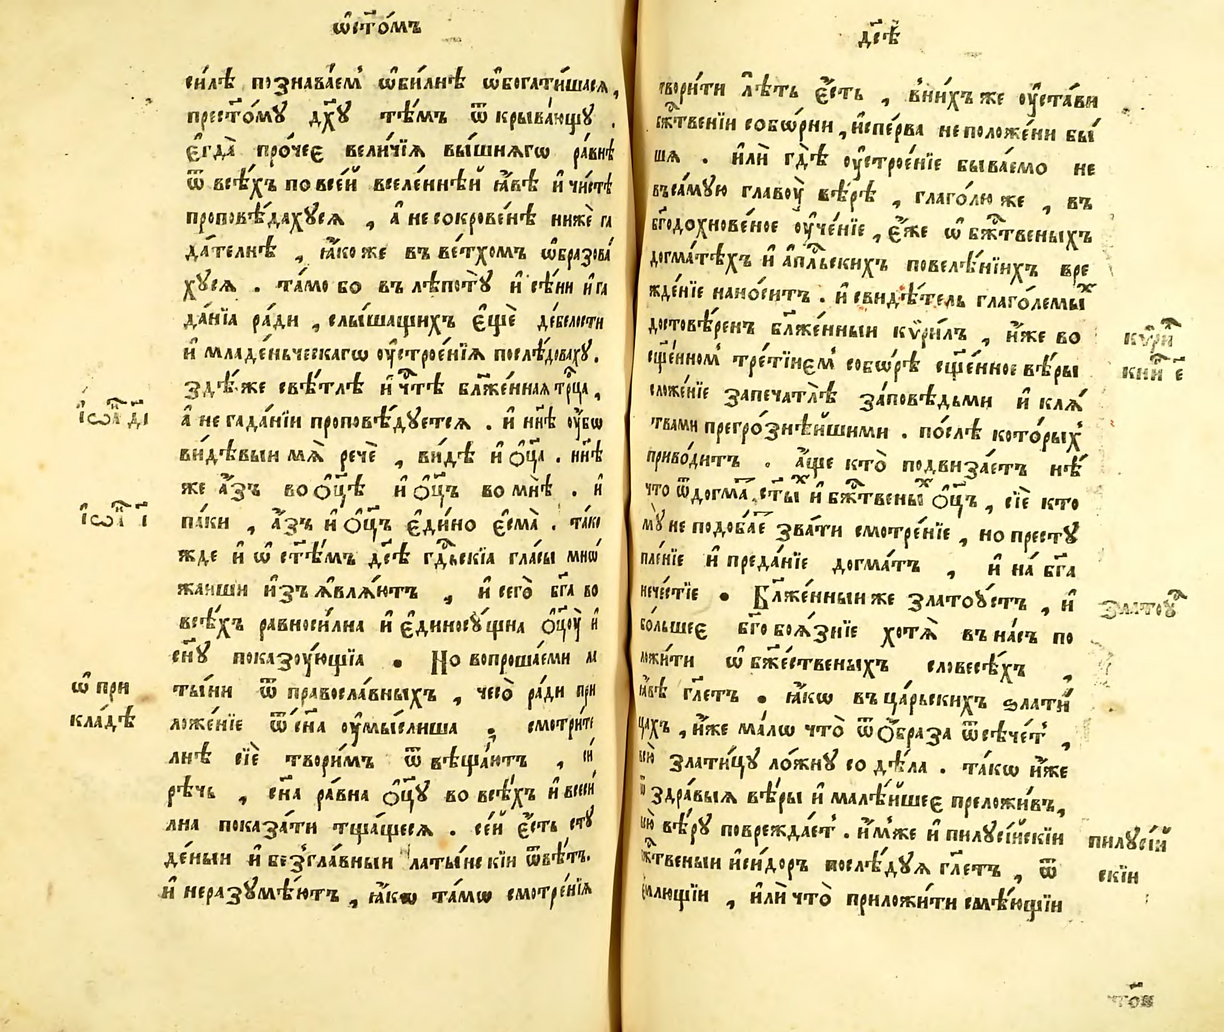 ѿстѡ́мъ
си́лѣ познава́емꙿ ѡ҆би́лнѣ ѡ҆богати́шасѧ,
прест҃о́мꙋ дх҃ꙋ тѣ́мъ ѿ крыва́ющꙋ .
є҆гда̀ про́чеє вели́чїѧ вы́шнѧгѡ ра́внѣ
ѿ всѣ́хъ по все́й вселе́ннѣй ꙗ҆́вѣ и҆ чи́стѣ
проповѣ́дахꙋсѧ , а҆ не сокрове́нѣ нижѐ га
да́телнѣ , ꙗ҆́коже въ ве́тхомъ ѡ҆бразова́
хꙋсѧ . та́мо бо въ лѣ́потꙋ и҆ сѣ́ни и҆ га
да́нїа ра́ди , слы́шащихъ є҆щѐ де́белости
и҆ младе́ньческагѡ ᲂу҆строе́нїѧ послѣ́довахꙋ.
здѣ́же свѣ́тлѣ и҆ чⷭ҇тѣ бл҃же́ннаѧ трⷪ҇ца ,
а҆ не гада́нїи проповѣ́дꙋетсѧ . и҆ нн҃ѣ ᲂу҆́бѡ
ви́дѣвыи мѧ̀ речѐ , ви́дѣ и҆ ѻ҆ц҃а̀ . нн҃ѣ
же а҆́зъ во ѻ҆ц҃ѣ̀ и҆ ѻ҆ц҃ъ во мнѣ̀ . и҆
па́ки , а҆́зъ и҆ ѻ҆ц҃ъ є҆ди́но є҆сма̀ . та́ко
жде и҆ ѡ҆ ст҃ѣ́мъ дс҃ѣ гдⷭ҇ьскїа гла́сы мнѡ́
жаиши и҆зъꙗвлѧ́ютъ , и҆ сего̀ бг҃а во
всѣ́хъ равноси́лна и҆ є҆диносꙋ́щна ѻ҆ц҃ꙋ̀ и҆
сн҃ꙋ показꙋ́ющїа . Но вопроша́еми ла
ты́ни ѿ правосла́вныхъ , чесо̀ ра́ди при
ложе́нїе ѿ сн҃а ᲂу҆мы́слиша , смотри́те
лнѣ сїѐ твори́мъ ѿвѣща́ютъ , си́
рѣчь , сн҃а ра́вна ѻ҆ц҃ꙋ во всѣ́хъ и҆ всеси́
лна показа́ти тща́щесѧ . се́й є҆́сть стꙋ́
де́ныи и҆ безгла́вныи латы́нскїи ѿвѣ́тъ.
и҆ не разꙋмѣ́ютъ , ꙗ҆́кѡ та́мѡ смотре́нїѧ
і҆ѡаⷩ҇ д҃і
і҆ѡаⷩ҇ і҃
ѡ҆ при
кла́дѣ
дс҃ѣ
твори́ти лѣ́ть є҆́сть , в ни́хъ же ᲂу҆ста́ви
бж҃твенїи собѡ́рни , и҆спе́рва не положе́ни бы́
шѧ . и҆лѝ гдѣ̀ ᲂу҆строе́нїе быва́емо не
въ са́мꙋю главꙋ̀ вѣ́рѣ , глаго́лю же , въ
бг҃одохнове́ное ᲂу҆че́нїе , є҆́же ѡ҆ бж҃твеныхъ
догма́тѣхъ и҆ а҆пⷭ҇льскихъ повелѣ́нїихъ вре
жде́нїе нано́ситъ . и҆ свидѣ́тель глаго́лемыⷯ
достовѣ́ренъ бл҃же́нныи кѷри́лъ , и҆́же во
сщ҃е́нномꙿ тре́тїиемꙿ собѡ́рѣ сщ҃е́нное вѣ́ры
сложе́нїе запечатлѣ̀ за́повѣдьми и҆ клѧ́
твами прегро́знѣишими . по́слѣ кото́рыхꙿ
приво́дитъ . а҆́ще кто̀ подвиза́етъ нѣ́
что ѿ догма́ ст҃ыⷯ и҆ бж҃твеныⷯ ѻ҆ц҃ъ , сїѐ кто
мꙋ̀ не подоба́е зва́ти смотре́нїе , но престꙋ
пле́нїе и҆ преда́нїе догма́тъ , и҆ на бг҃а
нече́стїе . Бл҃же́нныи же златоꙋ́стъ , и҆
бо́льшеє бг҃обоѧ́знїе хотѧ̀ въ на́съ по
ложи́ти ѡ҆ бжⷭ҇е́ственыхъ словесѣ́хъ ,
ꙗ҆́вѣ гл҃етъ . ꙗ҆́кѡ въ ца́рьскихъ ѕлати́
цахъ , и҆́же ма́лѡ что̀ ѿ ѻ҆́браза ѿсѣ́четꙿ ,
всю̀ злати́цꙋ ло́жнꙋ содѣ́ла . та́кѡ и҆́же
ѿ здра́выѧ вѣ́ры и҆ малѣ́йшеє преложи́въ,
всю̀ вѣ́рꙋ поврежда́етꙿ . и҆́мже и҆ пилꙋсі́искїи
бжⷭ҇твеныи и҆си́доръ послѣ́дꙋѧ гл҃етъ , ѿ
е́млющїи , и҆лѝ что̀ приложи́ти смѣ́ющїи
кѷриⷧ҇
кни҃ г є҃
златоꙋⷭ҇
пилꙋсі́й
скїи